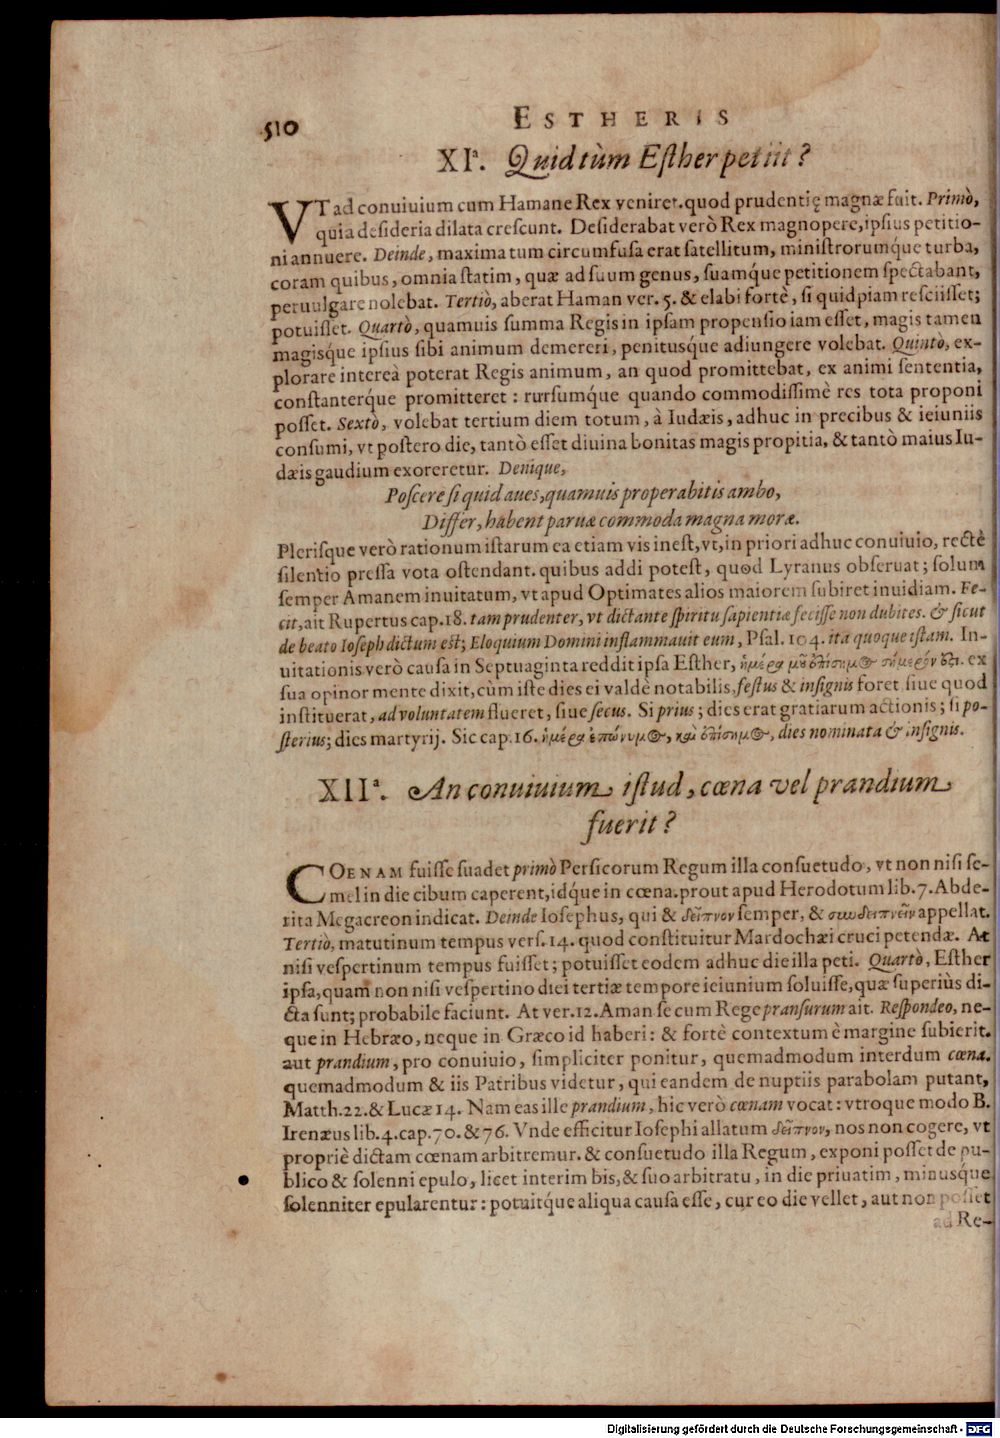 510 ESTHERIS
XIª. Quid tùm Esther petiit?
VT ad conuiuium cum Hamane Rex veniret. quod prudentię magnæ fuit. Primò,
quia desideria dilata crescunt. Desiderabat verò Rex magnopere, ipsius petitio-
ni annuere. Deinde, maxima tum circumfusa erat satellitum, ministrorumq́ue turba,
coram quibus, omnia statim, quæ ad suum genus, suamq́ue petitionem spectabant,
peruulgare nolebat. Tertiò, aberat Haman ver. 5. & elabi fortè, si quidpiam resciisset;
potuisset. Quartò, quamuis summa Regis in ipsam propensio iam esset, magis tamen
magisq́ue ipsius sibi animum demereri, penitusq́ue adiungere volebat. Quintò, ex-
plorare intereà poterat Regis animum, an quod promittebat, ex animi sententia,
constanterque promitteret: rursumq́ue quando commodissimè res tota proponi
posset. Sextò, volebat tertium diem totum, à Iudæis, adhuc in precibus & ieiuniis
consumi, vt postero die, tantò esset diuina bonitas magis propitia, & tantò maius Iu-
dæis gaudium exoreretur. Denique,
Poscere si quid aues, quamuis properabitis ambo,
Differ, habent paruæ commoda magna moræ.
Plerisque verò rationum istarum ea etiam vis inest, vt, in priori adhuc conuiuio, rectè
silentio pressa vota ostendant. quibus addi potest, quod Lyranus obseruat; solum
semper Amanem inuitatum, vt apud Optimates alios maiorem subiret inuidiam. Fe-
cit, ait Rupertus cap. 18. tam prudenter, vt dictante spiritu sapientiæ fecisse non dubites. & sicut
de beato Ioseph dictum est; Eloquium Domini inflammauit eum, Psal. 104. ita quoque istam. In-
uitationis verò causa in Septuaginta reddit ipsa Esther, ἡμέρα μȣ ἐπίσημος σήμερόν ἐςι. ex
sua opinor mente dixit, cùm iste dies ei valdè notabilis, festus & insignis foret siue quod
instituerat, ad voluntatem flueret, siue secus. Si prius; dies erat gratiarum actionis; si po-
sterius; dies martyrij. Sic cap. 16. ἡμέρα ἐπώνυμος, καὶ ἐπίσημος, dies nominata & insignis.
XIIª. An conuiuium istud, cœna vel prandium
fuerit?
COENAM fuisse suadet primò Persicorum Regum illa consuetudo, vt non nisi se-
mel in die cibum caperent, idq́ue in cœna. prout apud Herodotum lib. 7. Abde-
rita Megacreon indicat. Deinde Iosephus, qui & δεῖπνον semper, & συνδειπνεῖν appellat.
Tertiò, matutinum tempus vers. 14. quod constituitur Mardochæi cruci petendæ. At
nisi vespertinum tempus fuisset; potuisset eodem adhuc die illa peti. Quartò, Esther
ipsa, quam non nisi vespertino diei tertiæ tempore ieiunium soluisse, quæ superiùs di-
cta sunt; probabile faciunt. At ver. 12. Aman se cum Rege pransurum ait. Respondeo, ne-
que in Hebræo, neque in Græco id haberi: & fortè contextum è margine subierit.
aut prandium, pro conuiuio, simpliciter ponitur, quemadmodum interdum cœna.
quemadmodum & iis Patribus videtur, qui eandem de nuptiis parabolam putant,
Matth. 22. & Lucæ 14. Nam eas ille prandium, hic verò cœnam vocat: vtroque modo B.
Irenæus lib. 4. cap. 70. & 76. Vnde efficitur Iosephi allatum δεῖπνον, nos non cogere, vt
propriè dictam cœnam arbitremur. & consuetudo illa Regum, exponi posset de pu-
blico & solenni epulo, licet interim bis, & suo arbitratu, in die priuatim, minusq́ue
solenniter epularentur: potuitq́ue aliqua causa esse, cur eo die vellet, aut non posset
ad Re-
Digitalisierung gefördert durch die Deutsche Forschungsgemeinschaft - DFG